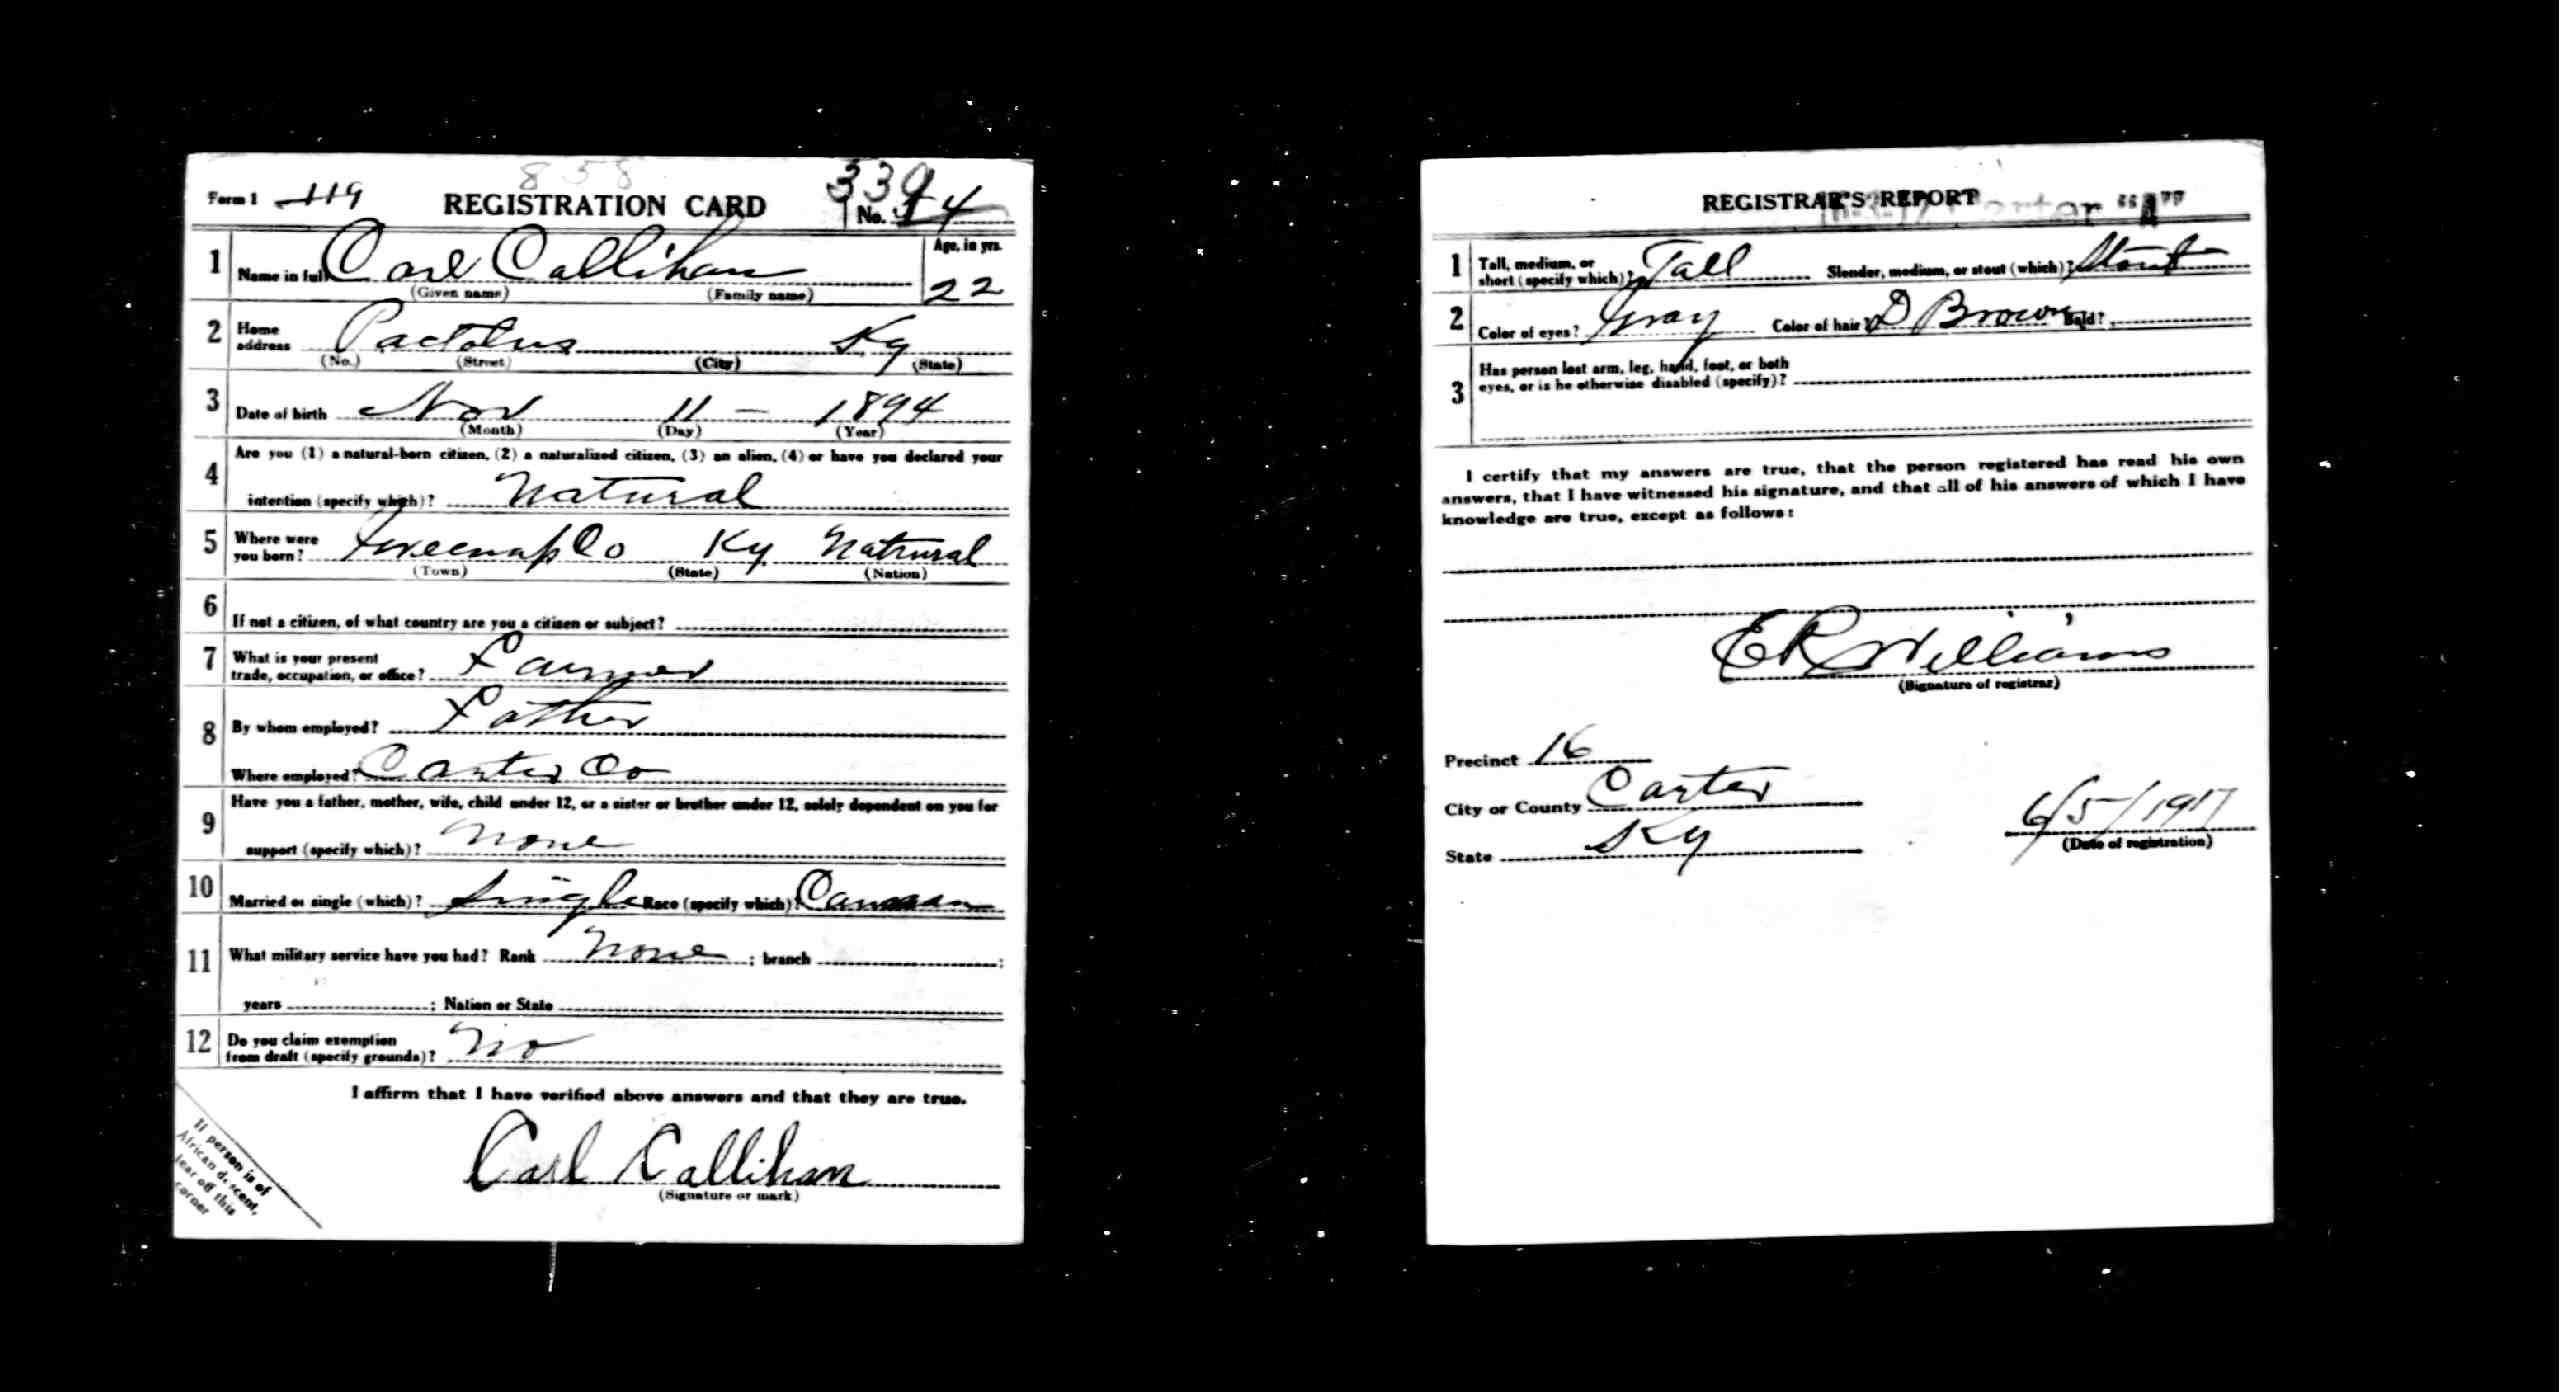 858
Form 1 119 REGISTRATION CARD No. 54
339
1 Name in full Carl Callihan Age, in yrs.
(Given name) (Family name) 22
2 Home address Pactolus Ky
(No.) (Street) (City) (State)
3 Date of birth Nov 11 - 1894
(Month) (Day) (Year)
Are you (1) a natural-born citizen, (2) a naturalized citizen, (3) an alien, (4) or have you declared your
4 intention (specify which)? Natural
5 Where were you born? Greenup Co Ky Natrural
(Town) (State) (Nation)
6 If not a citizen, of what country are you a citizen or subject?
7 What is your present
trade, occupation, or office? Farmer
8 By whom employed? Father
Where employed? Carter Co
Have you a father, mother, wife, child under 12, or a sister or brother under 12, solely dependent on you for
9 support (specify which)? None
10 Married or single (which)? Single Race (specify which)?
11 What military service have you had? Rank None ; branch ;
years ; Nation or State
12 Do you claim exemption
from draft (specify grounds)? No
I affirm that I have verified above answers and that they are true.
Carl Callihan
(Signature or mark)
If person is of
African descent,
tear off this
corner
REGISTRAR'S REPORT "A"
1 Tall, medium, or
short (specify which)? Tall Slender, medium, or stout (which)? Stout
2 Color of eyes? Gray Color of hair? D Brown Bald?
3 Has person lost arm, leg, hand, foot, or both
eyes, or is he otherwise disabled (specify)?
I certify that my answers are true, that the person registered has read his own
answers, that I have witnessed his signature, and that all of his answers of which I have
knowledge are true, except as follows:
E R Williams
(Signature of registrar)
Precinct 16
City or County Carter
State Ky
6/5/1917
(Date of registration)